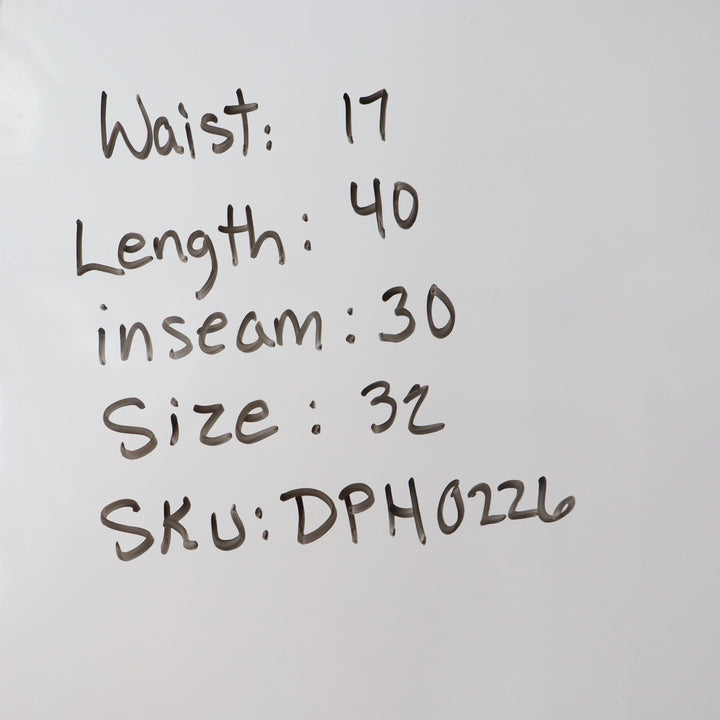 Waist: 17
Length: 40
inseam: 30
Size: 32
SKU: DPH0226